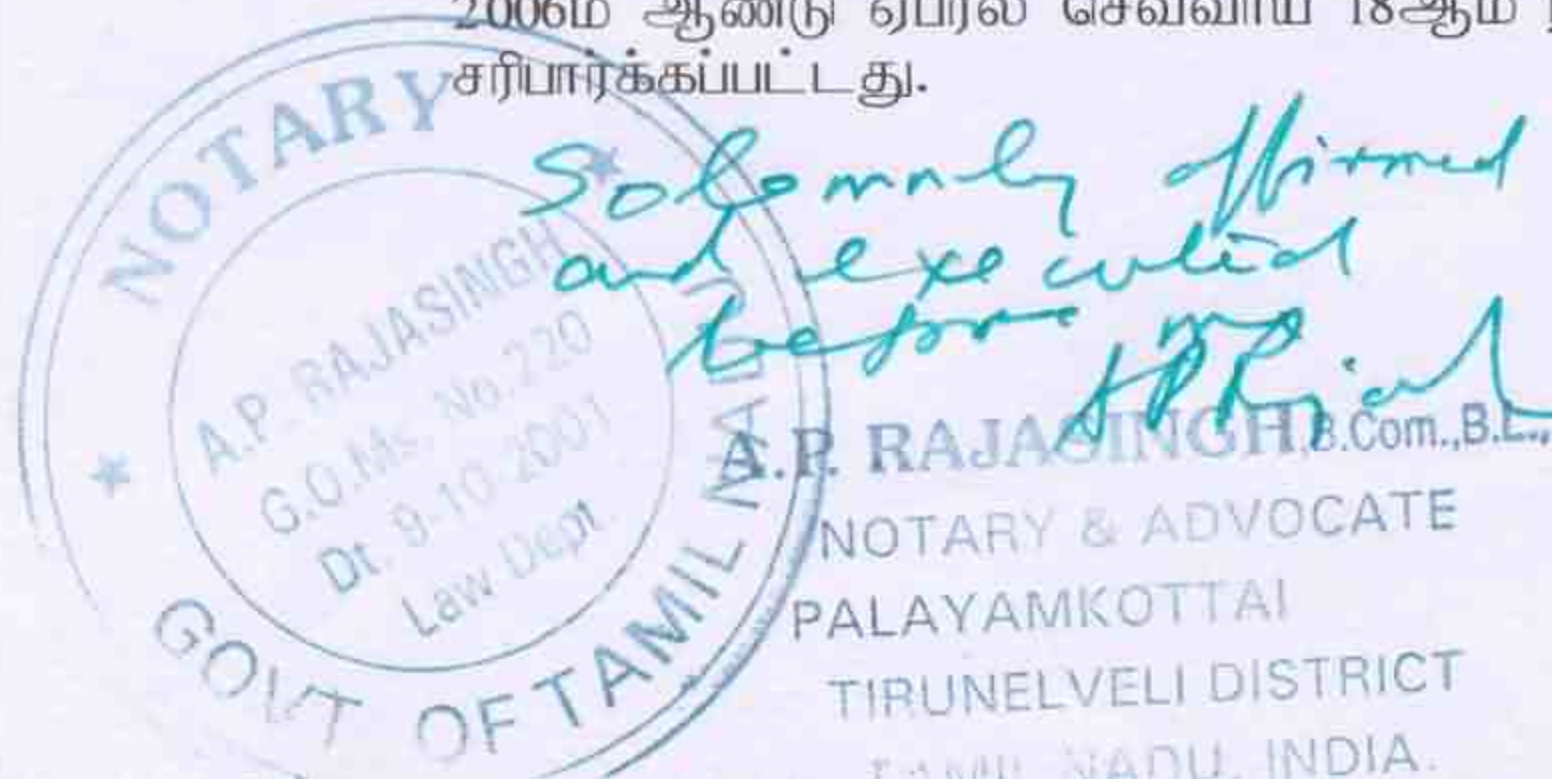 2006ம் ஆண்டு ஏப்ரல் செவ்வாய் 18ஆம்
சரிபார்க்கப்பட்டது.
Solomnly affirmed
and executed
before me
A.P. RAJASINGH B.Com.,B.L.,
NOTARY & ADVOCATE
PALAYAMKOTTAI
TIRUNELVELI DISTRICT
TAMIL NADU, INDIA.
NOTARY
A.P. RAJASINGH
G.O.Ms. No.220
Dt. 9-10-2001
Law Dept.
GOVT OF TAMIL NADU